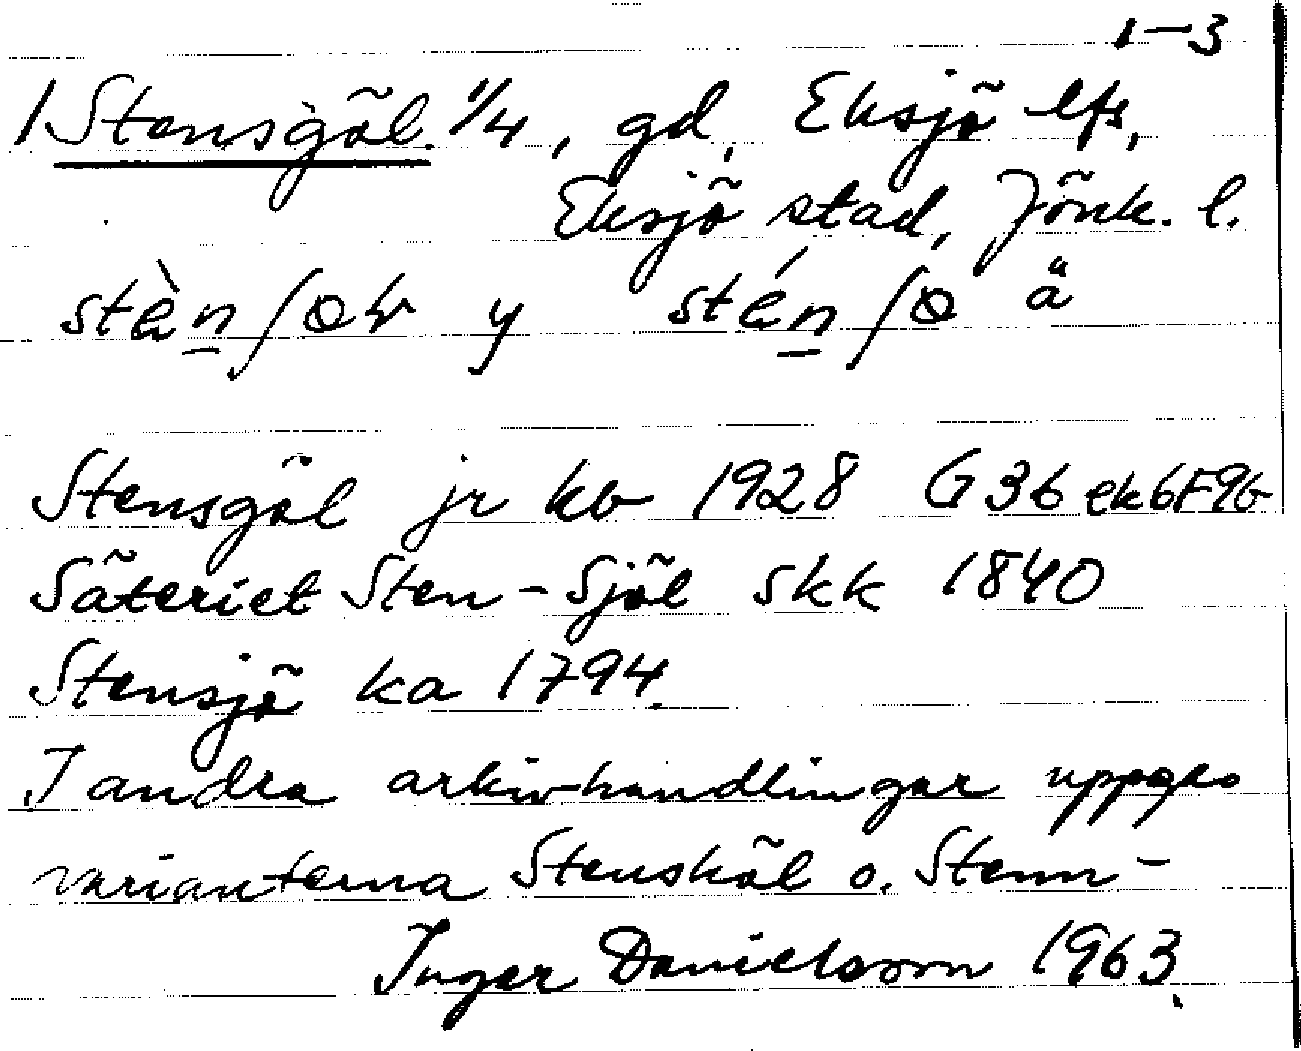 1–3
1 Stensgöl 1/4, gd, Eksjö lfs,
Eksjö stad, Jönk. l.
y ä
Stensgöl jr kb 1928 G36 ek6F9G
Säteriet Sten-Sjöl skk 1840
Stensjö ka 1794.
I andra arkivhandlingar uppges
varianterna Stensköl o. Stenn-
Inger Danielsson 1963.